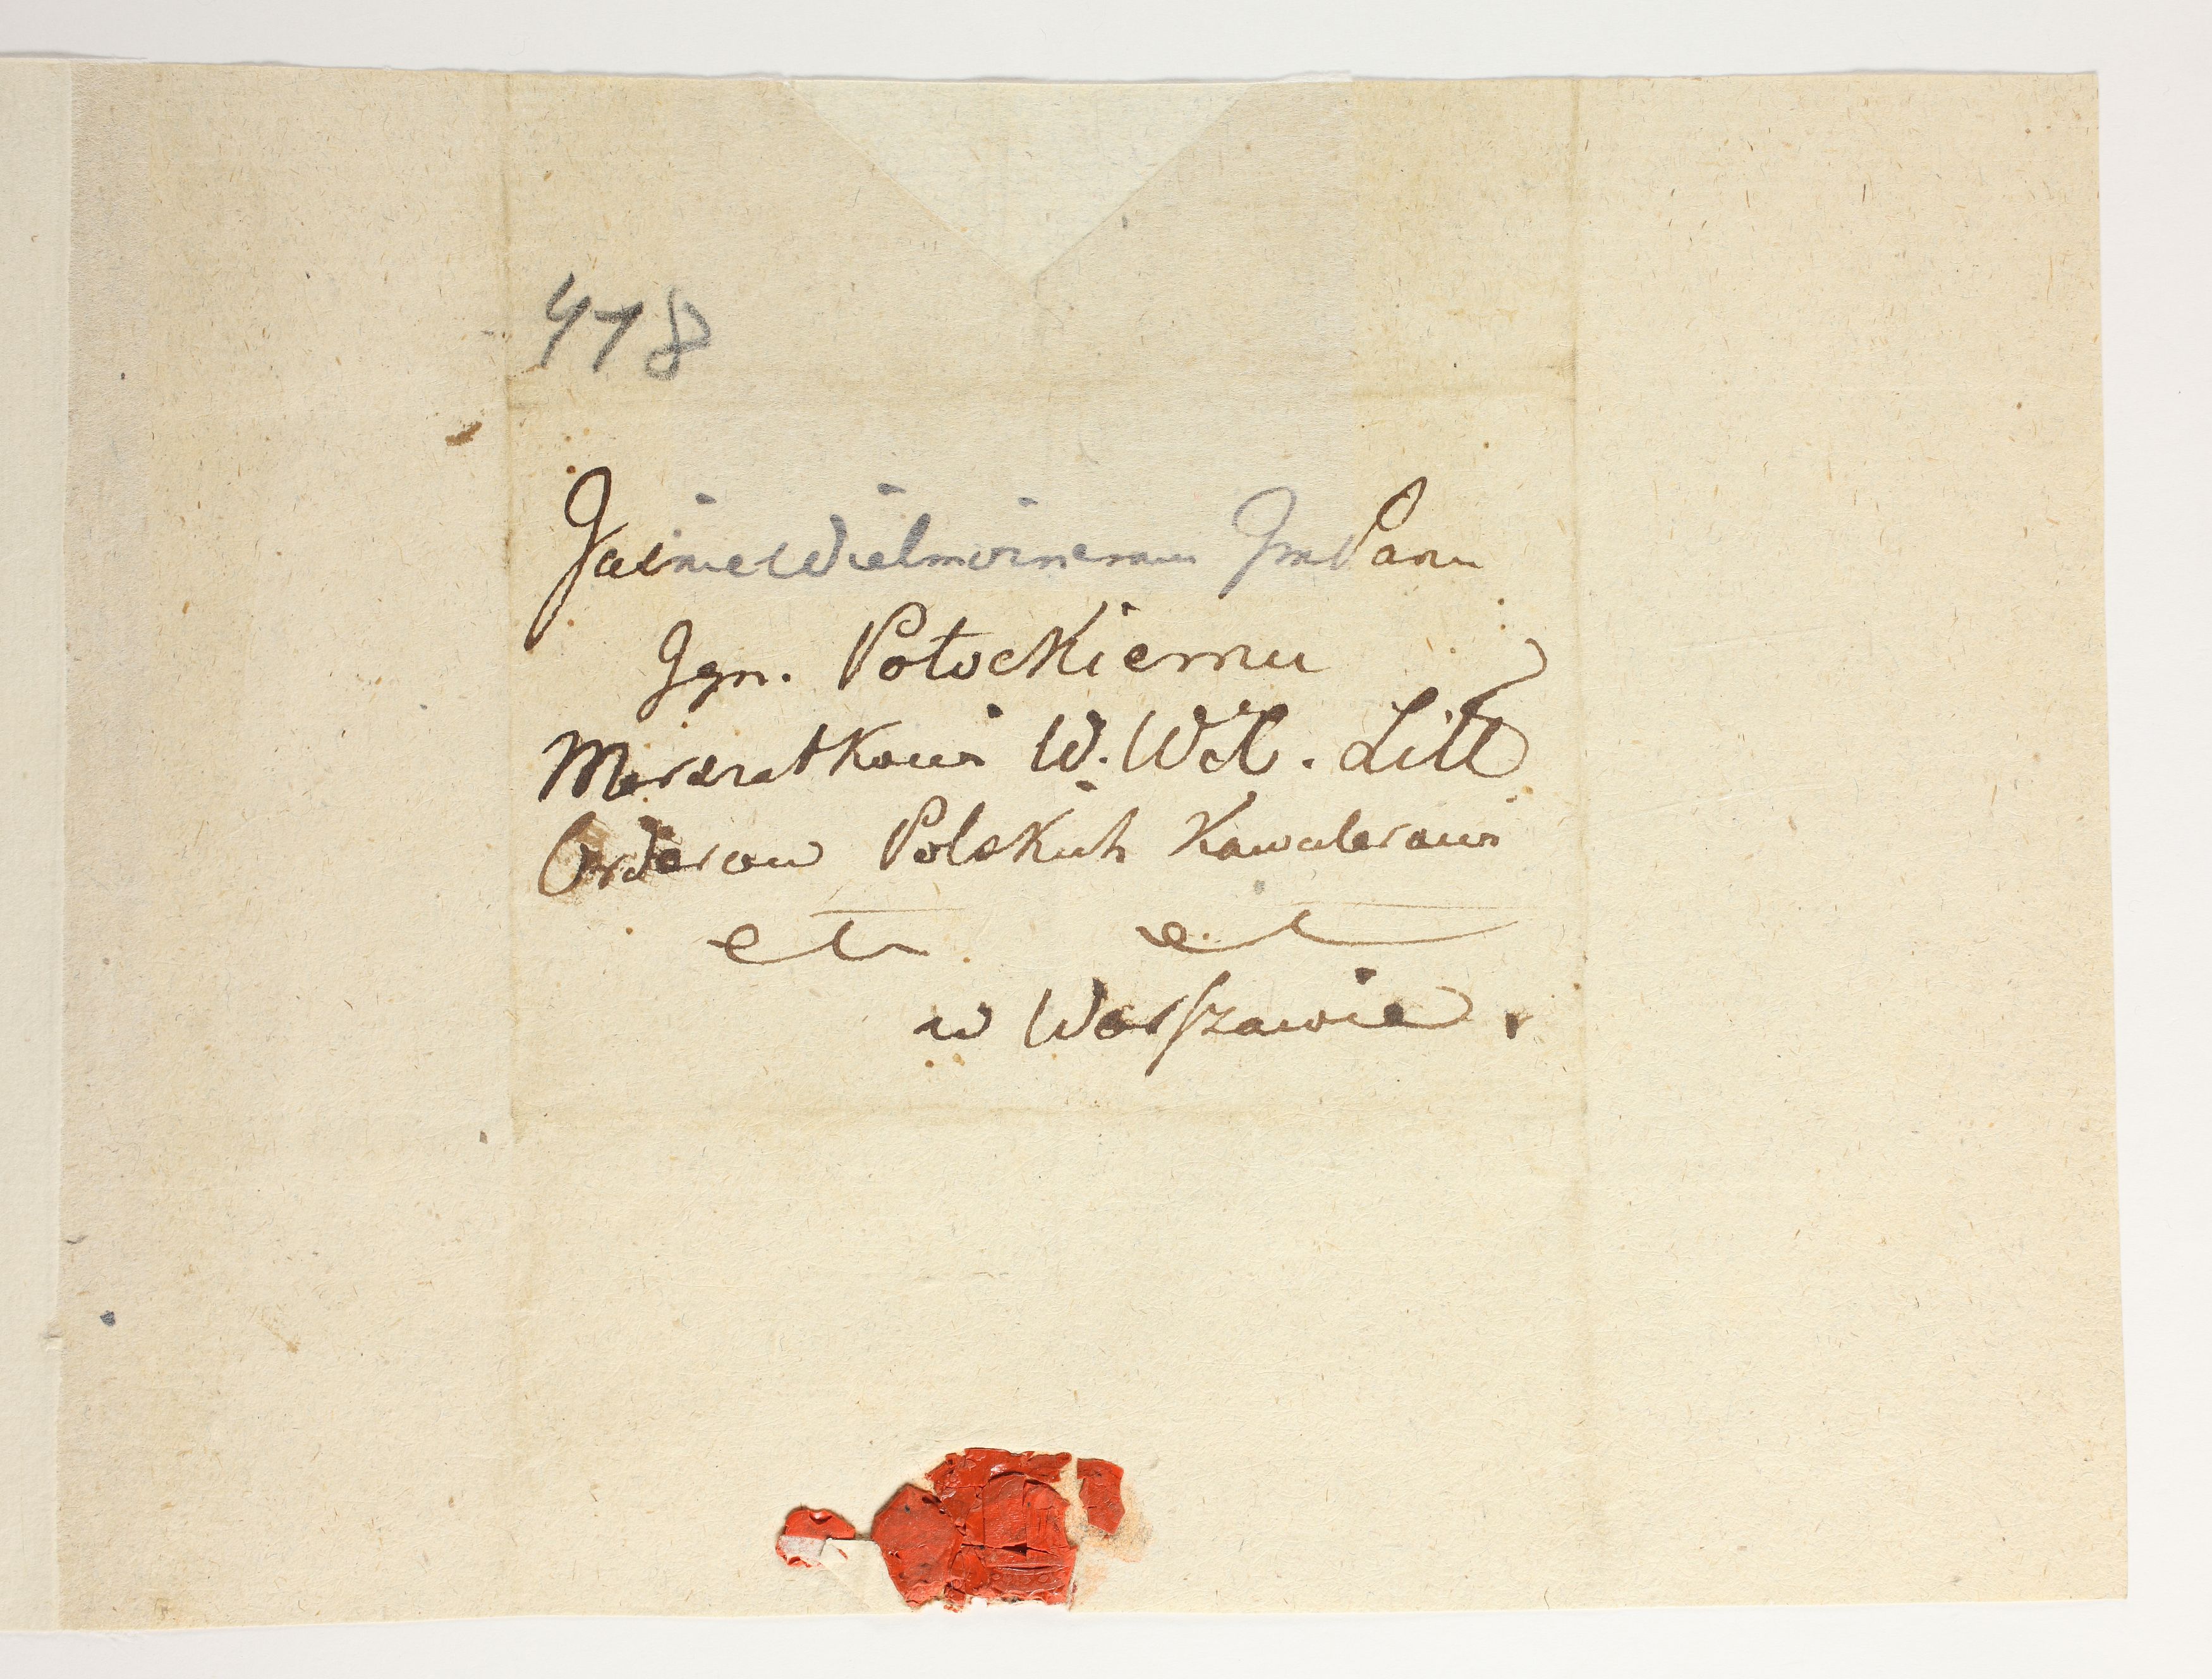 478
JaśnieWielmożnemu ImPanu
Ign. Potockiemu
Marszałkowi W. WX. Litt
Orderow Polskich Kawalerowi
etc et
w Warszawie.